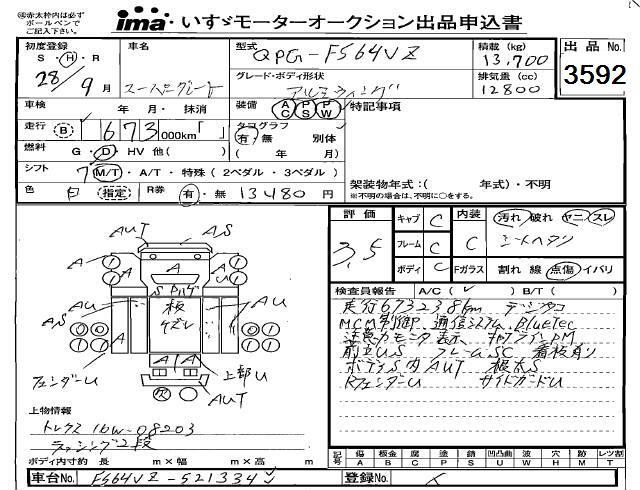 ㊟赤太枠内は必ず
ボールペンで
ご記入下さい。
ima いすゞモーターオークション出品申込書
初度登録
S・H・R
28年9月
車名
スーパーグレート
型式
QPG-FS64VZ
グレード・ボディ形状
アルミウイング
積載(kg)
13,700
排気量(cc)
12800
出品No.
3592
車検 年 月・抹消
装備 AC PS PW
特記事項
走行 B 673 000km「 」
タコグラフ
有・無 別体
燃料 G・D・HV 他( )
( 年 月)
シフト 7 M/T・A/T・特殊(2ペダル・3ペダル)
色 白 指定 R券 有・無 13480 円
架装物年式:( 年式)・不明
※不明の場合は、不明に○をする。
評価 3.5
キャブ C
フレーム C
ボディ C
内装 C
汚れ 破れ ヤニ スレ
シートヘタリ
Fガラス 割れ 線 点傷 イバリ
AUT AS
A A A
S
板
ズレ
AU AU
AS
フェンダーU
A A
上部U
AUT
欠
検査員報告 A/C( ) B/T( )
走行673238km デジタコ
MCM制御P 通信システム Bluetec
前立US フレームSC 看板有り
ボディS内AUT 根太S
RフェンダーU サイドガードU
上物情報
トレクス 16w-08203
ラッシング2段
ボディ内寸約 長 m×幅 m×高 m
記号 傷 A 板金 B 腐 C 塗 P 錆 S 凹凸曲 U 波 W 穴 H 跡 M レツ割 T
車台No. FS64VZ-521334
登録No.